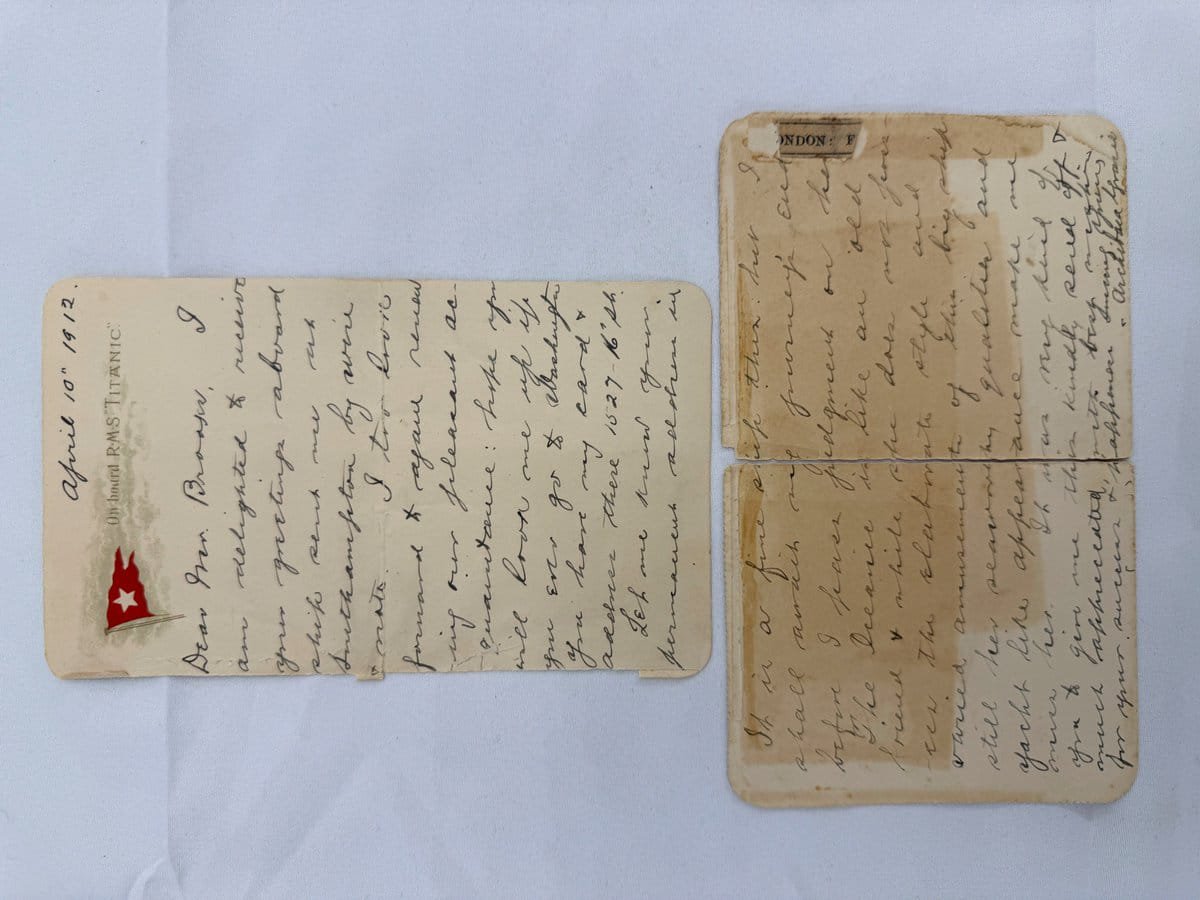 April 10" 1912.
On board R.M.S. "TITANIC"
Dear Mr. I
am delighted to receive
your greetings aboard
ship sent me at
Southampton by wire
& note. I too look
forward to again renew
ing our pleasant ac-
quaintance: hope you
will look me up if
you ever go to Washington
You have my card &
address there 1527-16" st.
Let me know your
permanent address in
ONDON: F
It is a fine ship this: but I
shall await my journey's end
before I pass judgment on her
The Oceanic is like an old
friend & while she does not poss-
ess the elaborate style and
varied amusements of this big ship
still her seaworthy qualities and
yacht like appearance make me
miss her. It was very kind of
you to give me this kindly send off &
much appreciated, with best wishes
for your success & happiness Sincerely yours
"Archibald Gracie